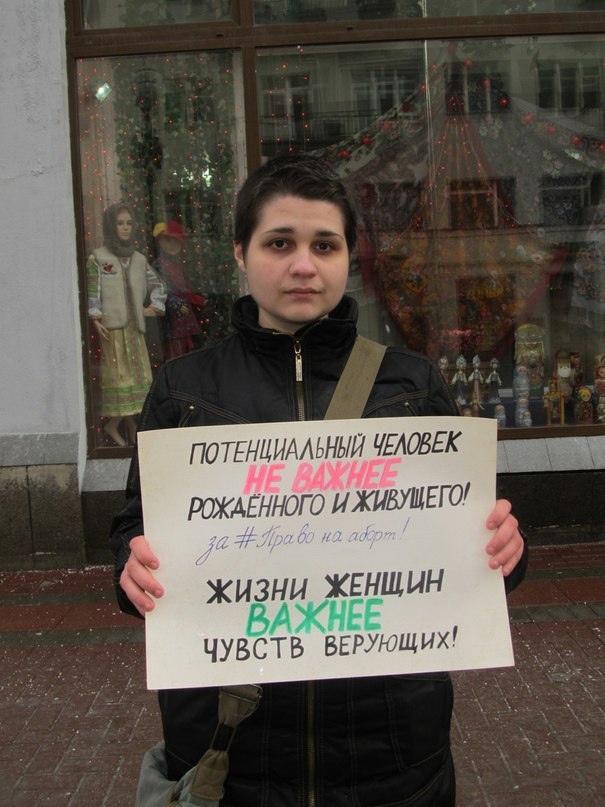 ПОТЕНЦИАЛЬНЫЙ ЧЕЛОВЕК
НЕ ВАЖНЕЕ
РОЖДЁННОГО И ЖИВУЩЕГО!
за #Право на аборт!
ЖИЗНИ ЖЕНЩИН
ВАЖНЕЕ
ЧУВСТВ ВЕРУЮЩИХ!